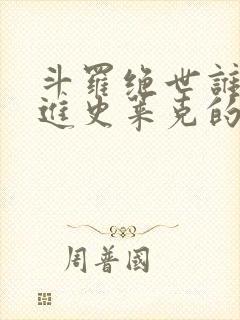 斗羅绝世誰
進史萊克的
周普國